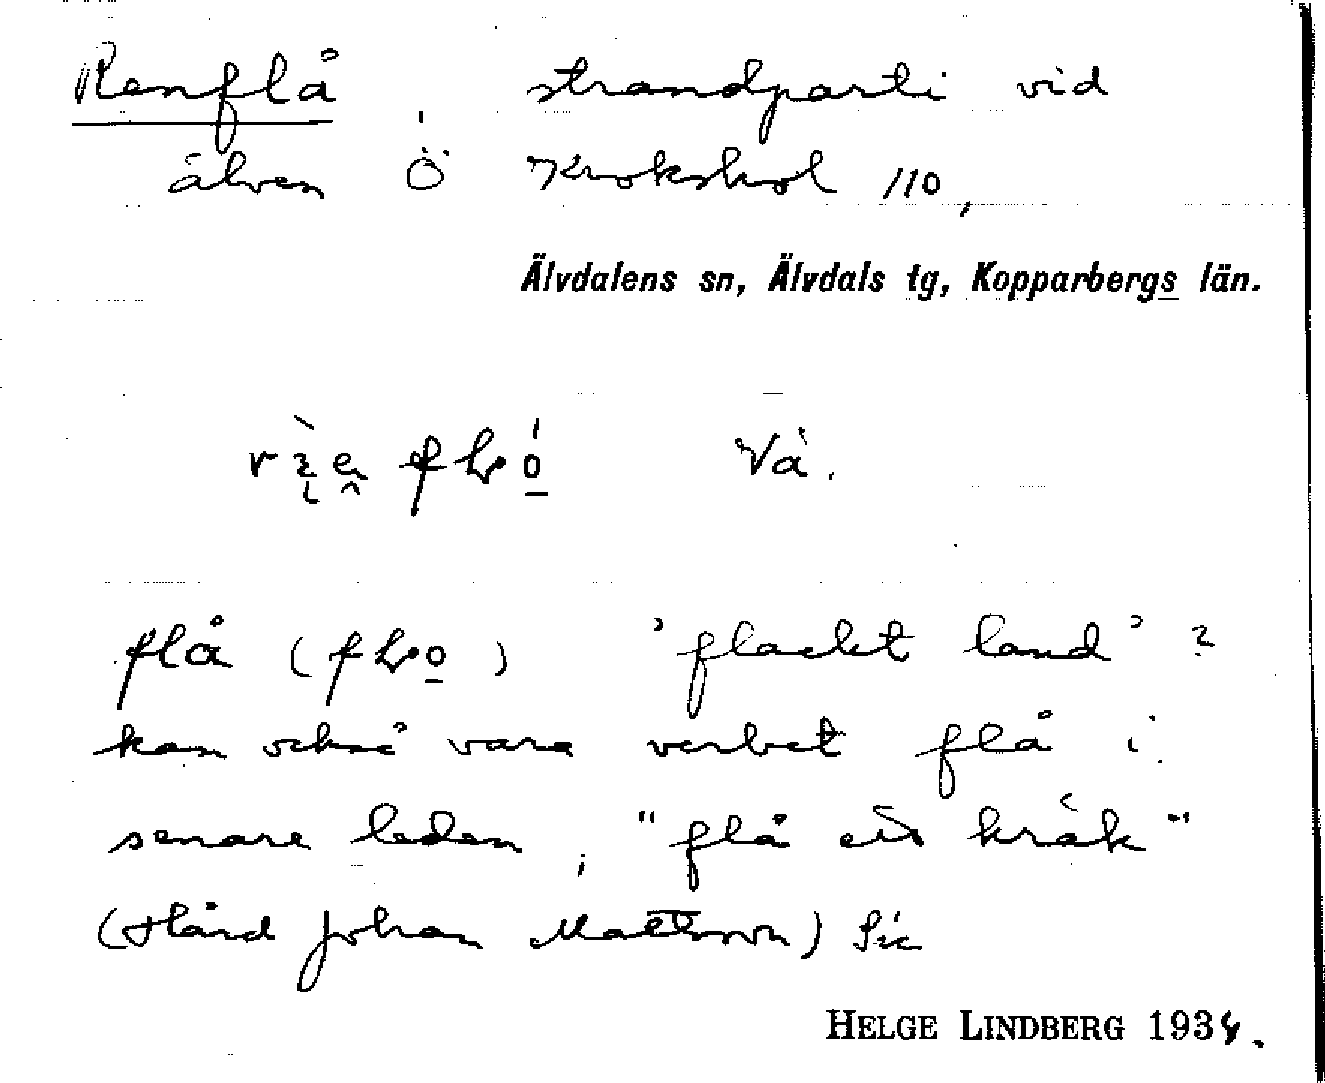 Renflå, strandparti vid
älven Ö Krokshol 110,
Älvdalens sn, Älvdals tg, Kopparbergs län.
Vå.
flå ( ) 'flackt land' ?
kan också vara verbet flå i
senare leden, "flå ett kråk"
(Hård Johan Mattsson) Sic
HELGE LINDBERG 1934.